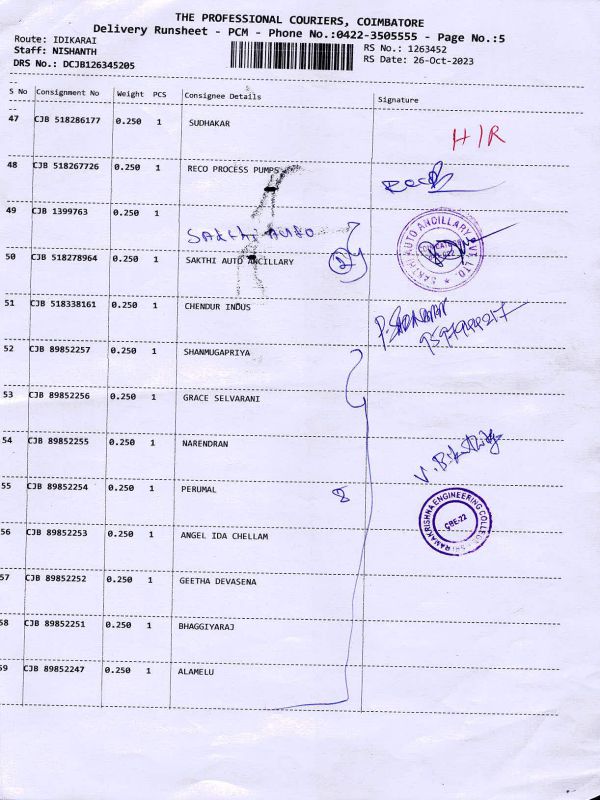 THE PROFESSIONAL COURIERS, COIMBATORE
Delivery Runsheet - PCM - Phone No.:0422-3505555 - Page No.:5
Route: IDIKARAI
RS No.: 1263452
Staff: NISHANTH
RS Date: 26-Oct-2023
DRS No.: DCJB126345205
S No Consignment No Weight PCS Consignee Details Signature
47 CJB 518286177 0.250 1 SUDHAKAR
H/R
48 CJB 518267726 0.250 1 RECO PROCESS PUMPS
49 CJB 1399763 0.250 1 SAKTHI AUTO
50 CJB 518278964 0.250 1 SAKTHI AUTO ANCILLARY 2
SAKTHI AUTO ANCILLARY PVT. LTD.
51 CJB 518338161 0.250 1 CHENDUR INDUS
52 CJB 89852257 0.250 1 SHANMUGAPRIYA
53 CJB 89852256 0.250 1 GRACE SELVARANI
54 CJB 89852255 0.250 1 NARENDRAN
55 CJB 89852254 0.250 1 PERUMAL 8
SRI RAMAKRISHNA ENGINEERING COLLEGE
CBE-22
56 CJB 89852253 0.250 1 ANGEL IDA CHELLAM
57 CJB 89852252 0.250 1 GEETHA DEVASENA
58 CJB 89852251 0.250 1 BHAGGIYARAJ
59 CJB 89852247 0.250 1 ALAMELU